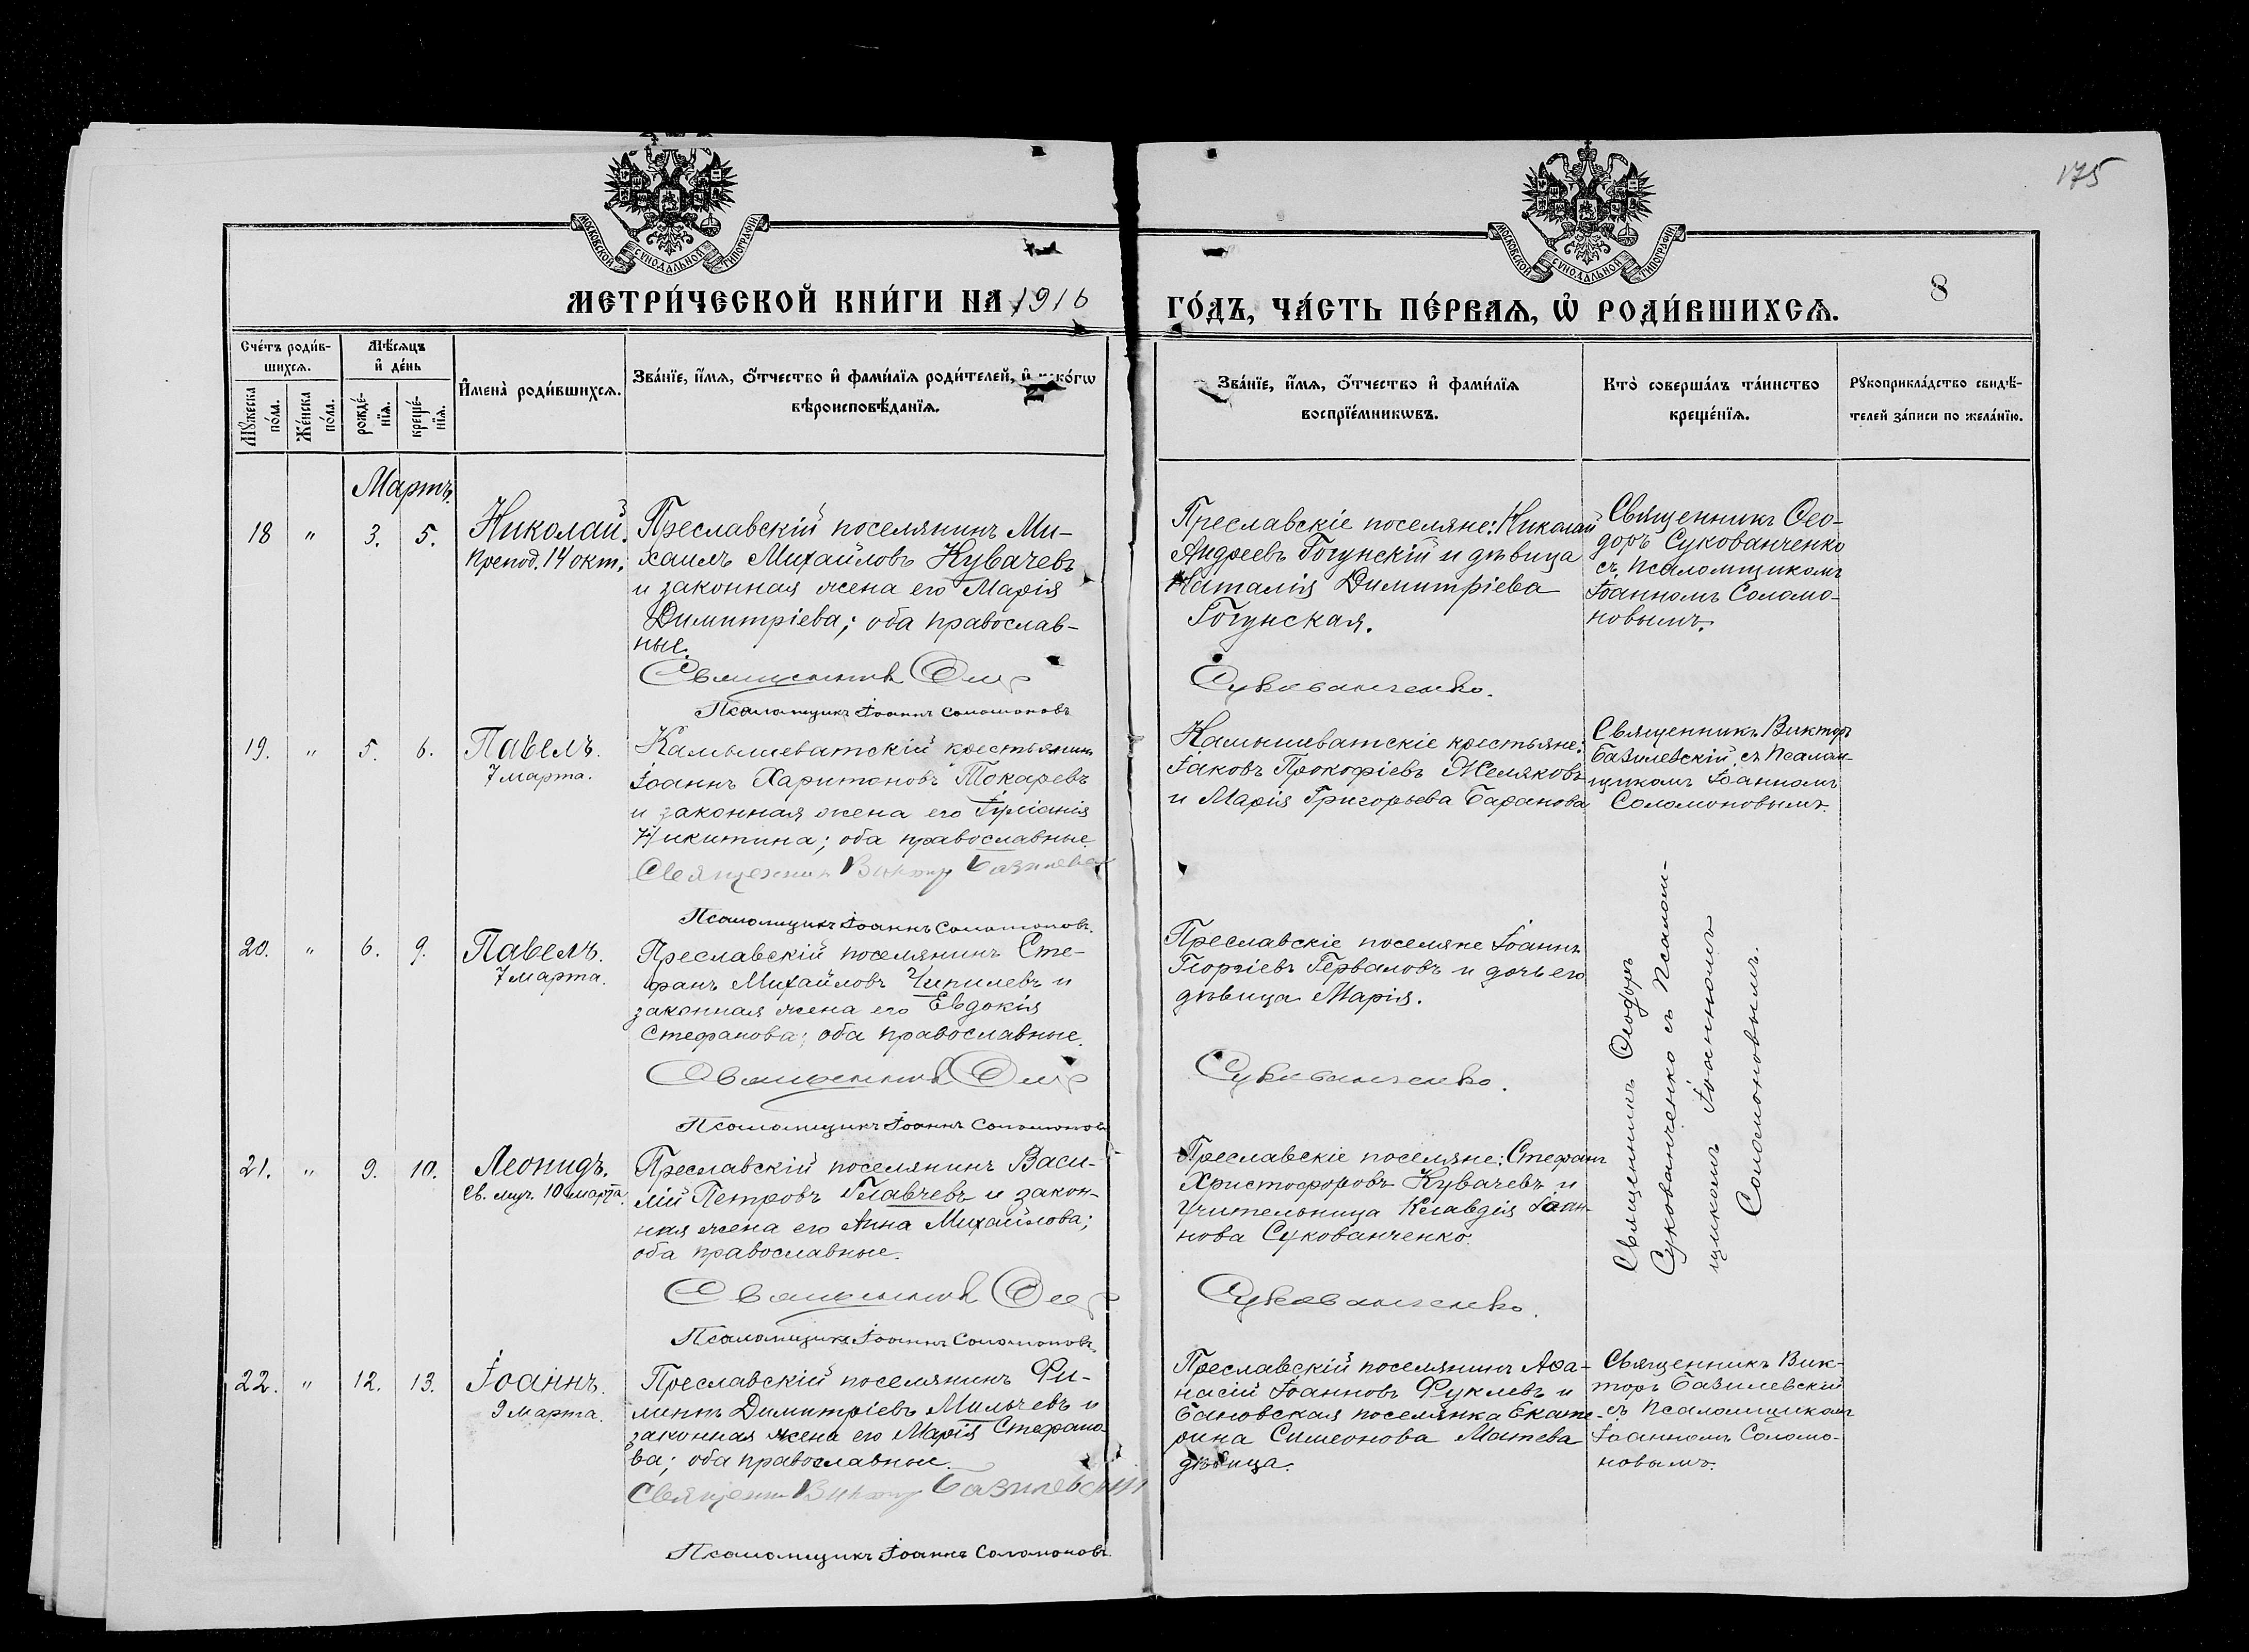 175
МОСКОВСКОЙ СѴНОДАЛЬНОЙ ТИПОГРАФІИ
МОСКОВСКОЙ СѴНОДАЛЬНОЙ ТИПОГРАФІИ
МЕТРИ́ЧЕСКОЙ КНИ́ГИ НА 1916
ГО́ДЪ, ЧА́СТЬ ПЕ́РВАѦ, Ѡ҆ РОДИ́ВШИХСѦ.
8
Сче́тъ роди́в-
шихсѧ.
Мꙋ́жеска по́ла.
Же́нска по́ла.
Мѣ́сѧцъ
и҆ де́нь
рожде́-
нїѧ.
креще́-
нїѧ.
И҆мена̀ роди́вшихсѧ.
Зва́нїе, и҆́мѧ, ѻ҆́тчество и҆ фами́лїѧ роди́телей, и҆
вѣроисповѣ́данїѧ.
Зва́нїе, и҆́мѧ, ѻ҆́тчество и҆ фами́лїѧ
воспрїе́мникѡвъ.
Кто̀ соверша́лъ та́инство
креще́нїѧ.
Рꙋкоприкла́дство свидѣ́-
телей за́писи по жела́нїю.
Мартъ.
18 " 3. 5.
Николай.
Препод. 14 окт.
Преславскій поселянинъ Ми-
хаилъ Михайловъ Кувачевъ
и законная жена его Марія
Димитріева; оба православ-
ные.
Священникъ Ѳеод
Псаломщикъ Іоаннъ Соломоновъ
Преславскіе поселяне: Николай
Андреевъ Гогунскій и дѣвица
Наталія Димитріева
Гогунская.
Сукованченко.
Священникъ Ѳео-
доръ Сукованченко
съ псаломщикомъ
Іоанномъ Соломо-
новымъ.
19. " 5. 6.
Павелъ.
7 марта.
Камышеватскій крестьянинъ
Іоаннъ Харитоновъ Токаревъ
и законная жена его
Никитина; оба православные
Священник Виктор Базилевск
Псаломщикъ Іоаннъ Соломоновъ.
Камышеватскіе крестьяне:
Іаковъ Прокофіевъ Желяковъ
и Марія Григорьева Баранова
Священникъ Викторъ
Базилевскій съ псалом-
щикомъ Іоанномъ
Соломоновымъ.
20. " 6. 9.
Павелъ.
7 марта.
Преславскій поселянинъ Сте-
фанъ Михайловъ Чипилевъ и
законная жена его Евдокія
Стефанова; оба православные.
Священникъ Ѳеод
Псаломщикъ Іоаннъ Соломонов
Преславскіе поселяне Іоаннъ
Георгіевъ Герваловъ и дочь его
дѣвица Марія.
Сукованченко.
Священникъ Ѳеодоръ
Сукованченко съ псалом-
щикомъ Іоанномъ
Соломоновымъ.
21. " 9. 10.
Леонидъ.
Св. муч. 10 марта.
Преславскій поселянинъ Васи-
лій Петровъ Главчевъ и закон-
ная жена его Анна Михайлова;
оба православные.
Священникъ Ѳеод
Псаломщикъ Іоаннъ Соломоновъ.
Преславскіе поселяне: Стефанъ
Христофоровъ Кувачевъ и
учительница Клавдія Іоан-
нова Сукованченко.
Сукованченко.
22. " 12. 13.
Іоаннъ.
9 марта.
Преславскій поселянинъ Фи-
липпъ Димитріевъ Милычевъ и
законная жена его Марія Стефано-
ва; оба православные.
Священник Виктор Базилевский
Псаломщикъ Іоаннъ Соломоновъ.
Преславскій поселянинъ Аѳа-
насій Іоанновъ Фуклевъ и
Бановская поселянка Екате-
рина Симеонова Матева
дѣвица.
Священникъ Вик-
торъ Базилевскій
съ псаломщикомъ
Іоанномъ Соломо-
новымъ.